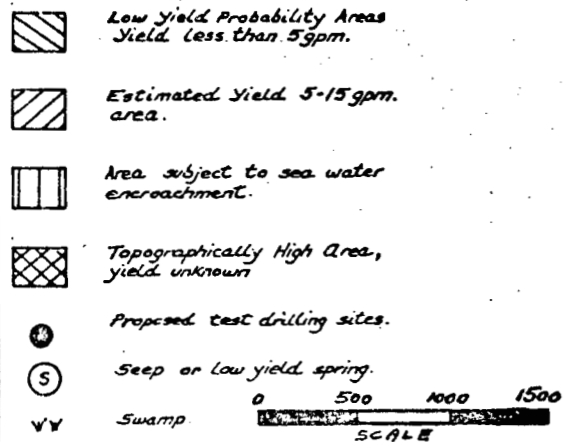 Low Yield Probability Areas
Yield less than 5gpm.
Estimated Yield 5-15gpm.
area.
Area subject to sea water
encroachment.
Topographically High Area,
yield unknown
Proposed test drilling sites.
S
Seep or low yield spring.
0 500 1000 1500
Swamp
SCALE